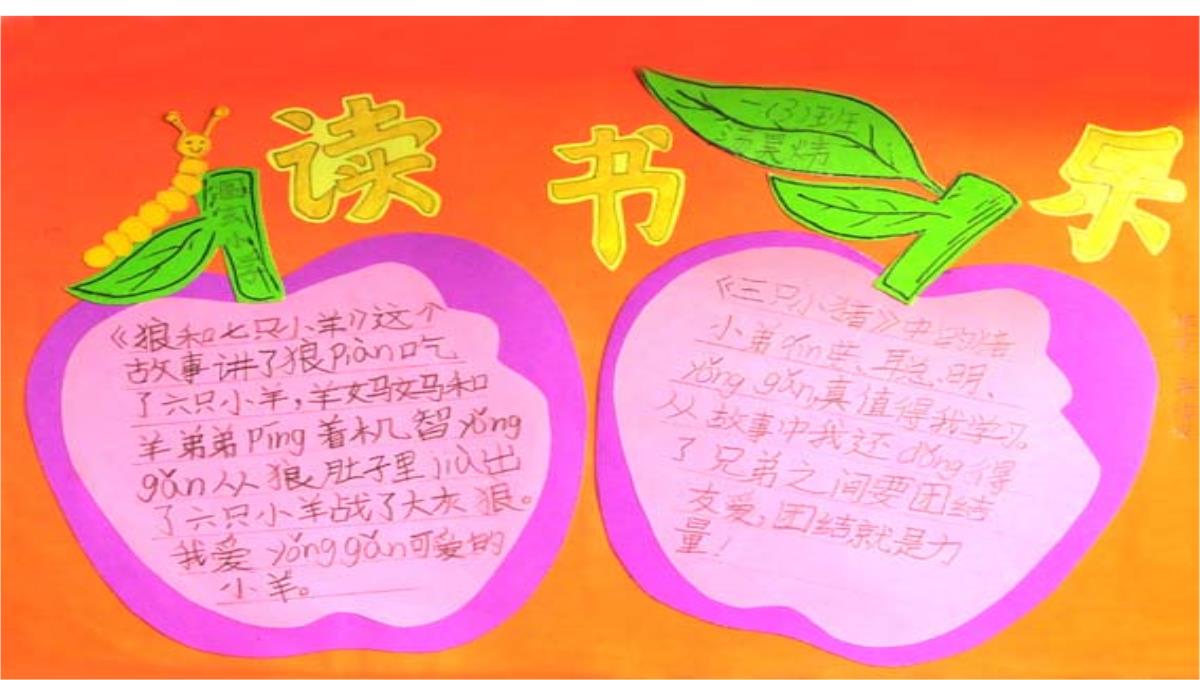 读书乐
一(3)班
小学
《狼和七只小羊》这个
故事讲了狼piàn吃
了六只小羊,羊妈妈和
羊弟弟píng着机智yǒng
gǎn从狼肚子里jiù出
了六只小羊战了大灰狼。
我爱yǒnggǎn可爱的
小羊。
《三只小猪》中的猪
小弟qín、聪明、
yǒng gǎn,真值得我学习。
从故事中我还dǒng得
了兄弟之间要团结
友爱,团结就是力
量!